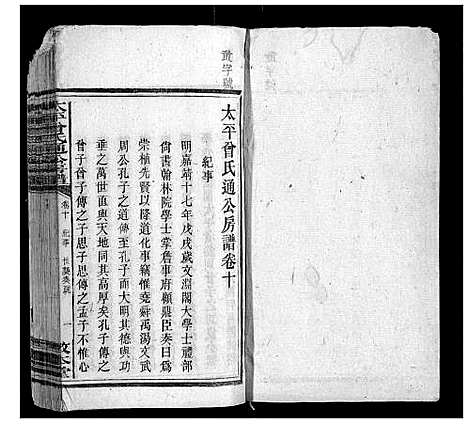 太平曾氏通公房譜卷十
紀事
明嘉靖十七年戊戌歲文淵閣大學士禮部
尚書翰林院學士掌詹事府顧鼎臣奏曰為
崇植先賢以隆道化事竊惟堯舜禹湯文武
周公孔子之道傳至孔子而大明其德與功
垂之萬世直與天地同其高厚矣孔子傳之
曾子曾子傳之子思子思傳之孟子不惟心
卷十
紀事
一